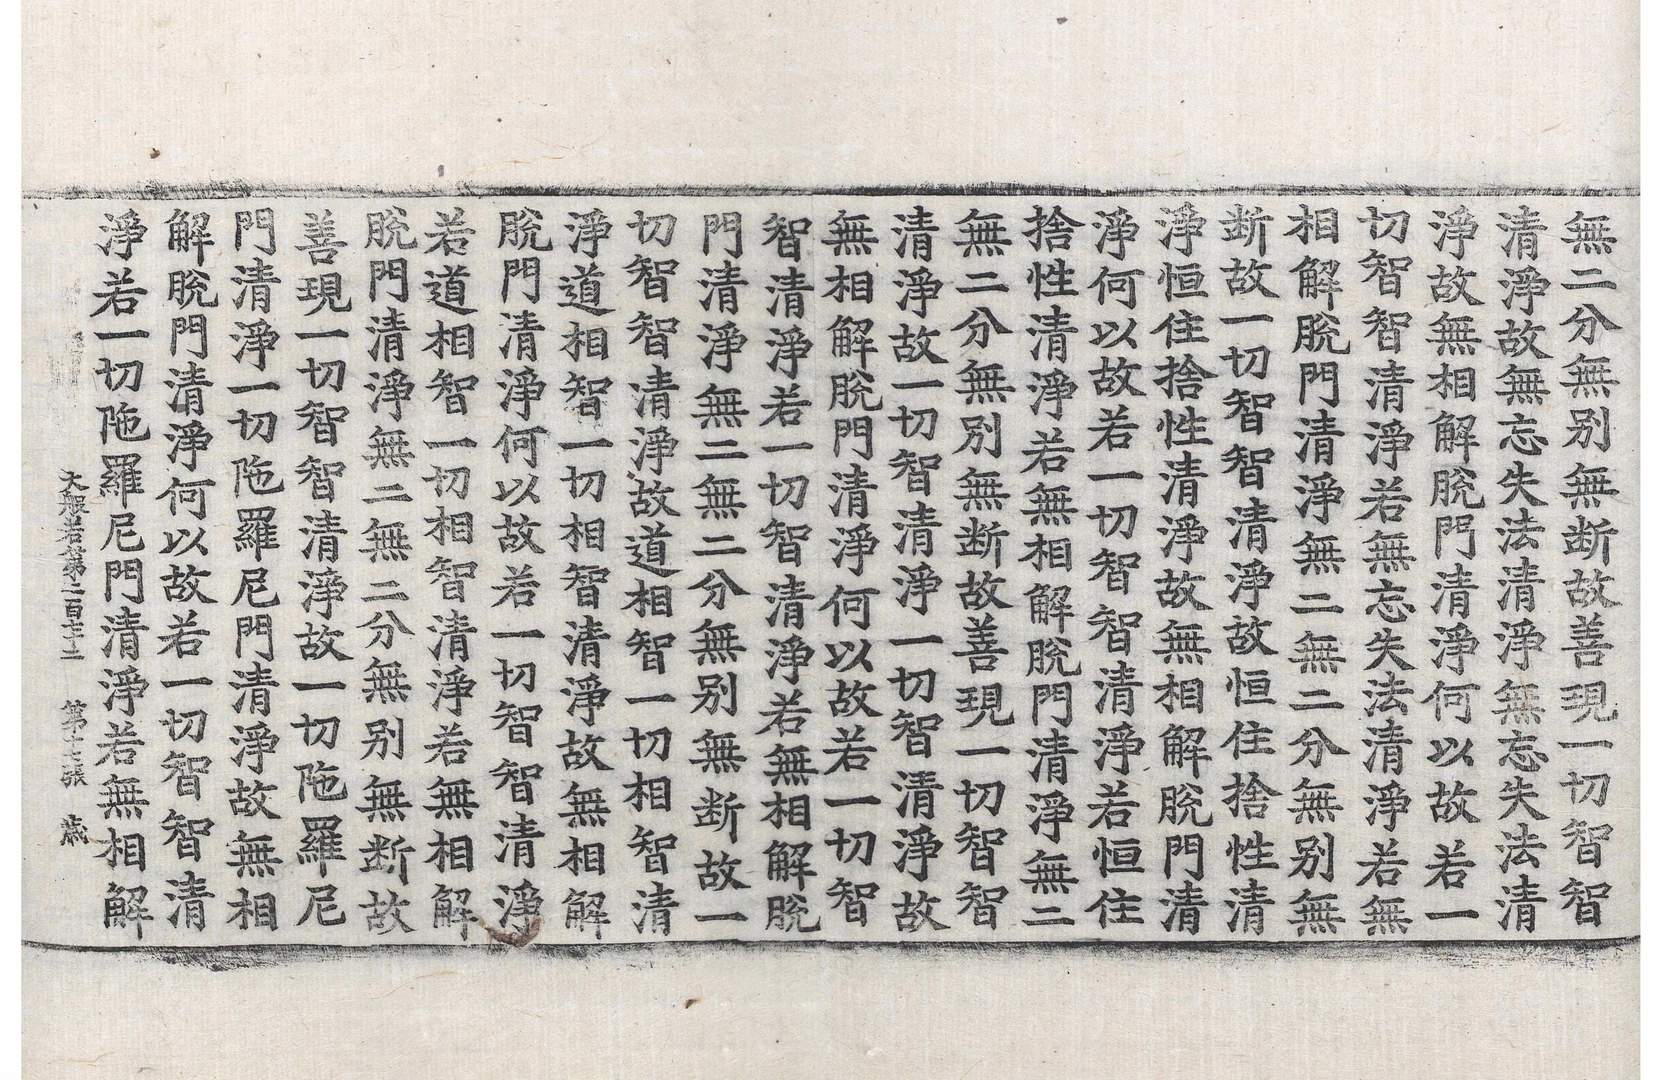 無二分無别無断故善現一切智智
清淨故無忘失法清淨無忘失法清
淨故無相解脫門清淨何以故若一
切智智清淨若無忘失法清淨若無
相解脫門清淨無二無二分無别無
断故一切智智清淨故恒住捨性清
淨恒住捨性清淨故無相解脫門清
淨何以故若一切智智清淨若恒住
捨性清淨若無相解脫門清淨無二
無二分無别無断故善現一切智智
清淨故一切智清淨一切智清淨故
無相解脫門清淨何以故若一切智
智清淨若一切智清淨若無相解脫
門清淨無二無二分無别無断故一
切智智清淨故道相智一切相智清
淨道相智一切相智清淨故無相解
脫門清淨何以故若一切智智清淨
若道相智一切相智清淨若無相解
脫門清淨無二無二分無别無断故
善現一切智智清淨故一切陁羅尼
門清淨一切陁羅尼門清淨故無相
解脫門清淨何以故若一切智智清
淨若一切陁羅尼門清淨若無相解
大般若第二百七十二 第十七張 歲